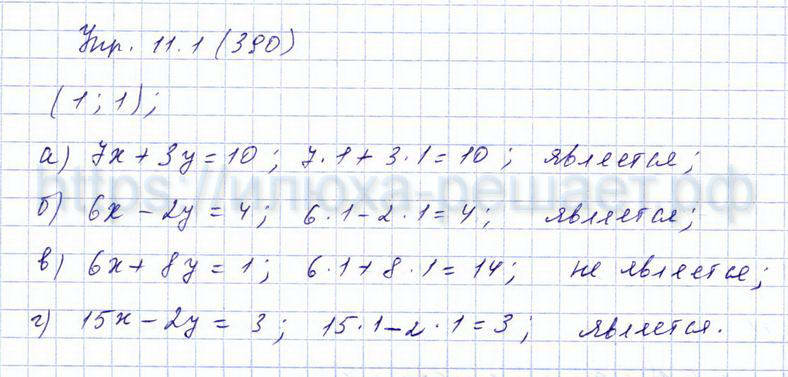 Упр. 11.1 (390)
(1; 1);
а) 7x + 3y = 10; 7·1 + 3·1 = 10; является;
https://илюха-решает.рф
б) 6x - 2y = 4; 6·1 - 2·1 = 4; является;
в) 6x + 8y = 1; 6·1 + 8·1 = 14; не является;
г) 15x - 2y = 3; 15·1 - 2·1 = 3; является.